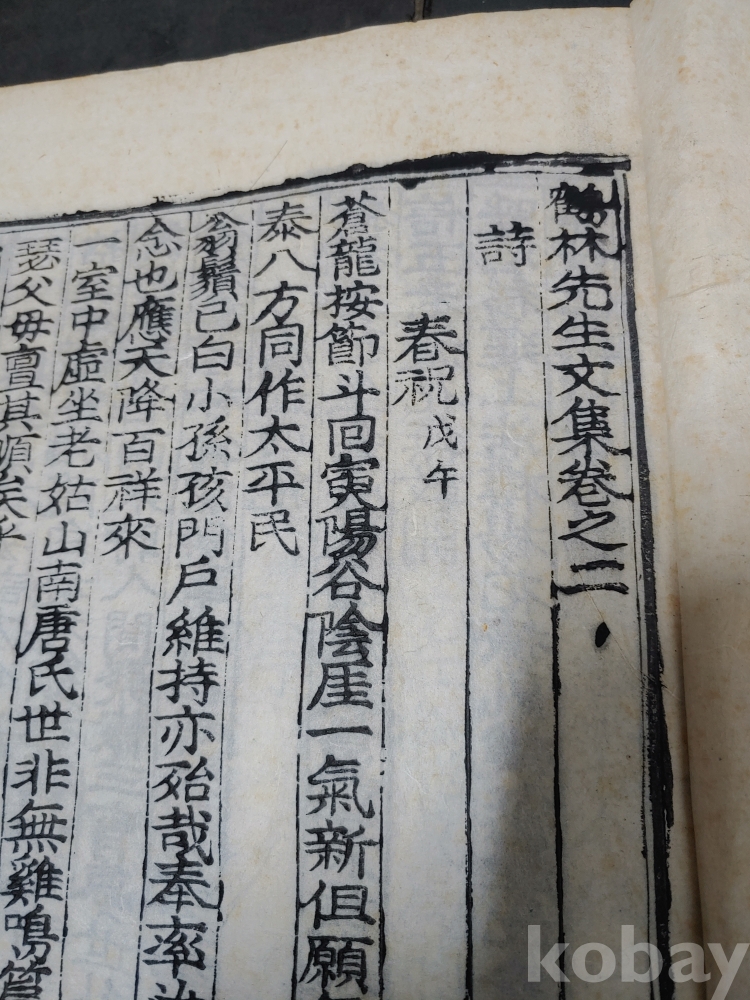 鶴林先生文集卷之二
詩
春祝戊午
蒼龍按節斗回寅陽谷陰厓一氣新但願
泰八方同作太平民
翁鬚已白小孫孩門戶維持亦殆哉奉率
念也應天降百祥來
一室中虛坐老姑山南唐氏世非無雞鳴
瑟父母亶其順矣乎
kobay